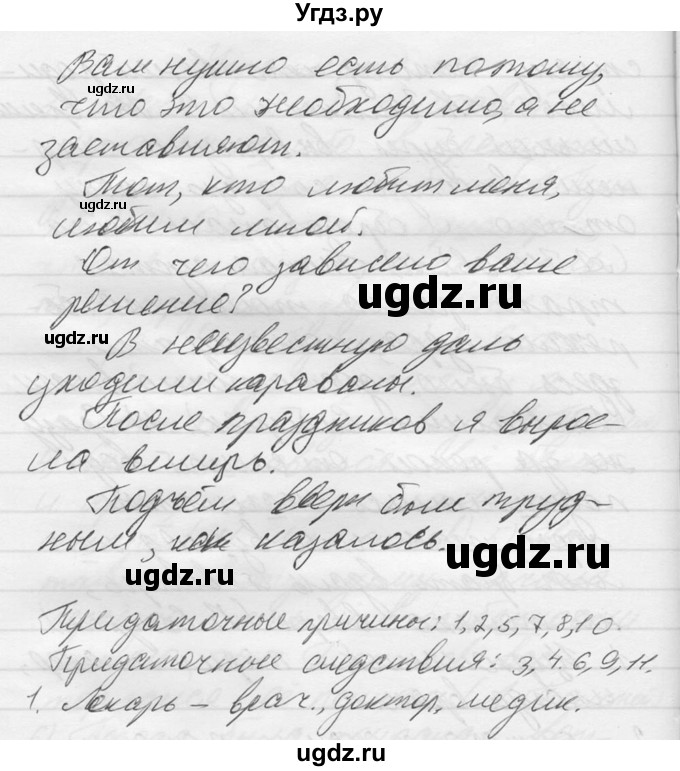 Угдз.ру
Вам нужно есть потому,
что это необходимо, а не
заставляют.
Тот, кто любит меня,
любим мной.
От чего зависело ваше
решение?
В неизвестную даль
уходили караваны.
После праздников я вырос-
ла вширь.
Подъём вверх был труд-
ным, как казалось.
Придаточные причины: 1,2,5,7,8,10.
Придаточные следствия: 3,4.6,9,11.
1. Лекарь – врач., доктор, медик.
ugdz.ru
ugdz.ru
ugdz.ru
ugdz.ru
ugdz.ru
ugdz.ru
ugdz.ru